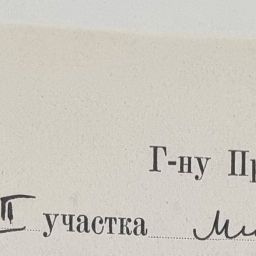 Г-ну Пр
II участка Ми